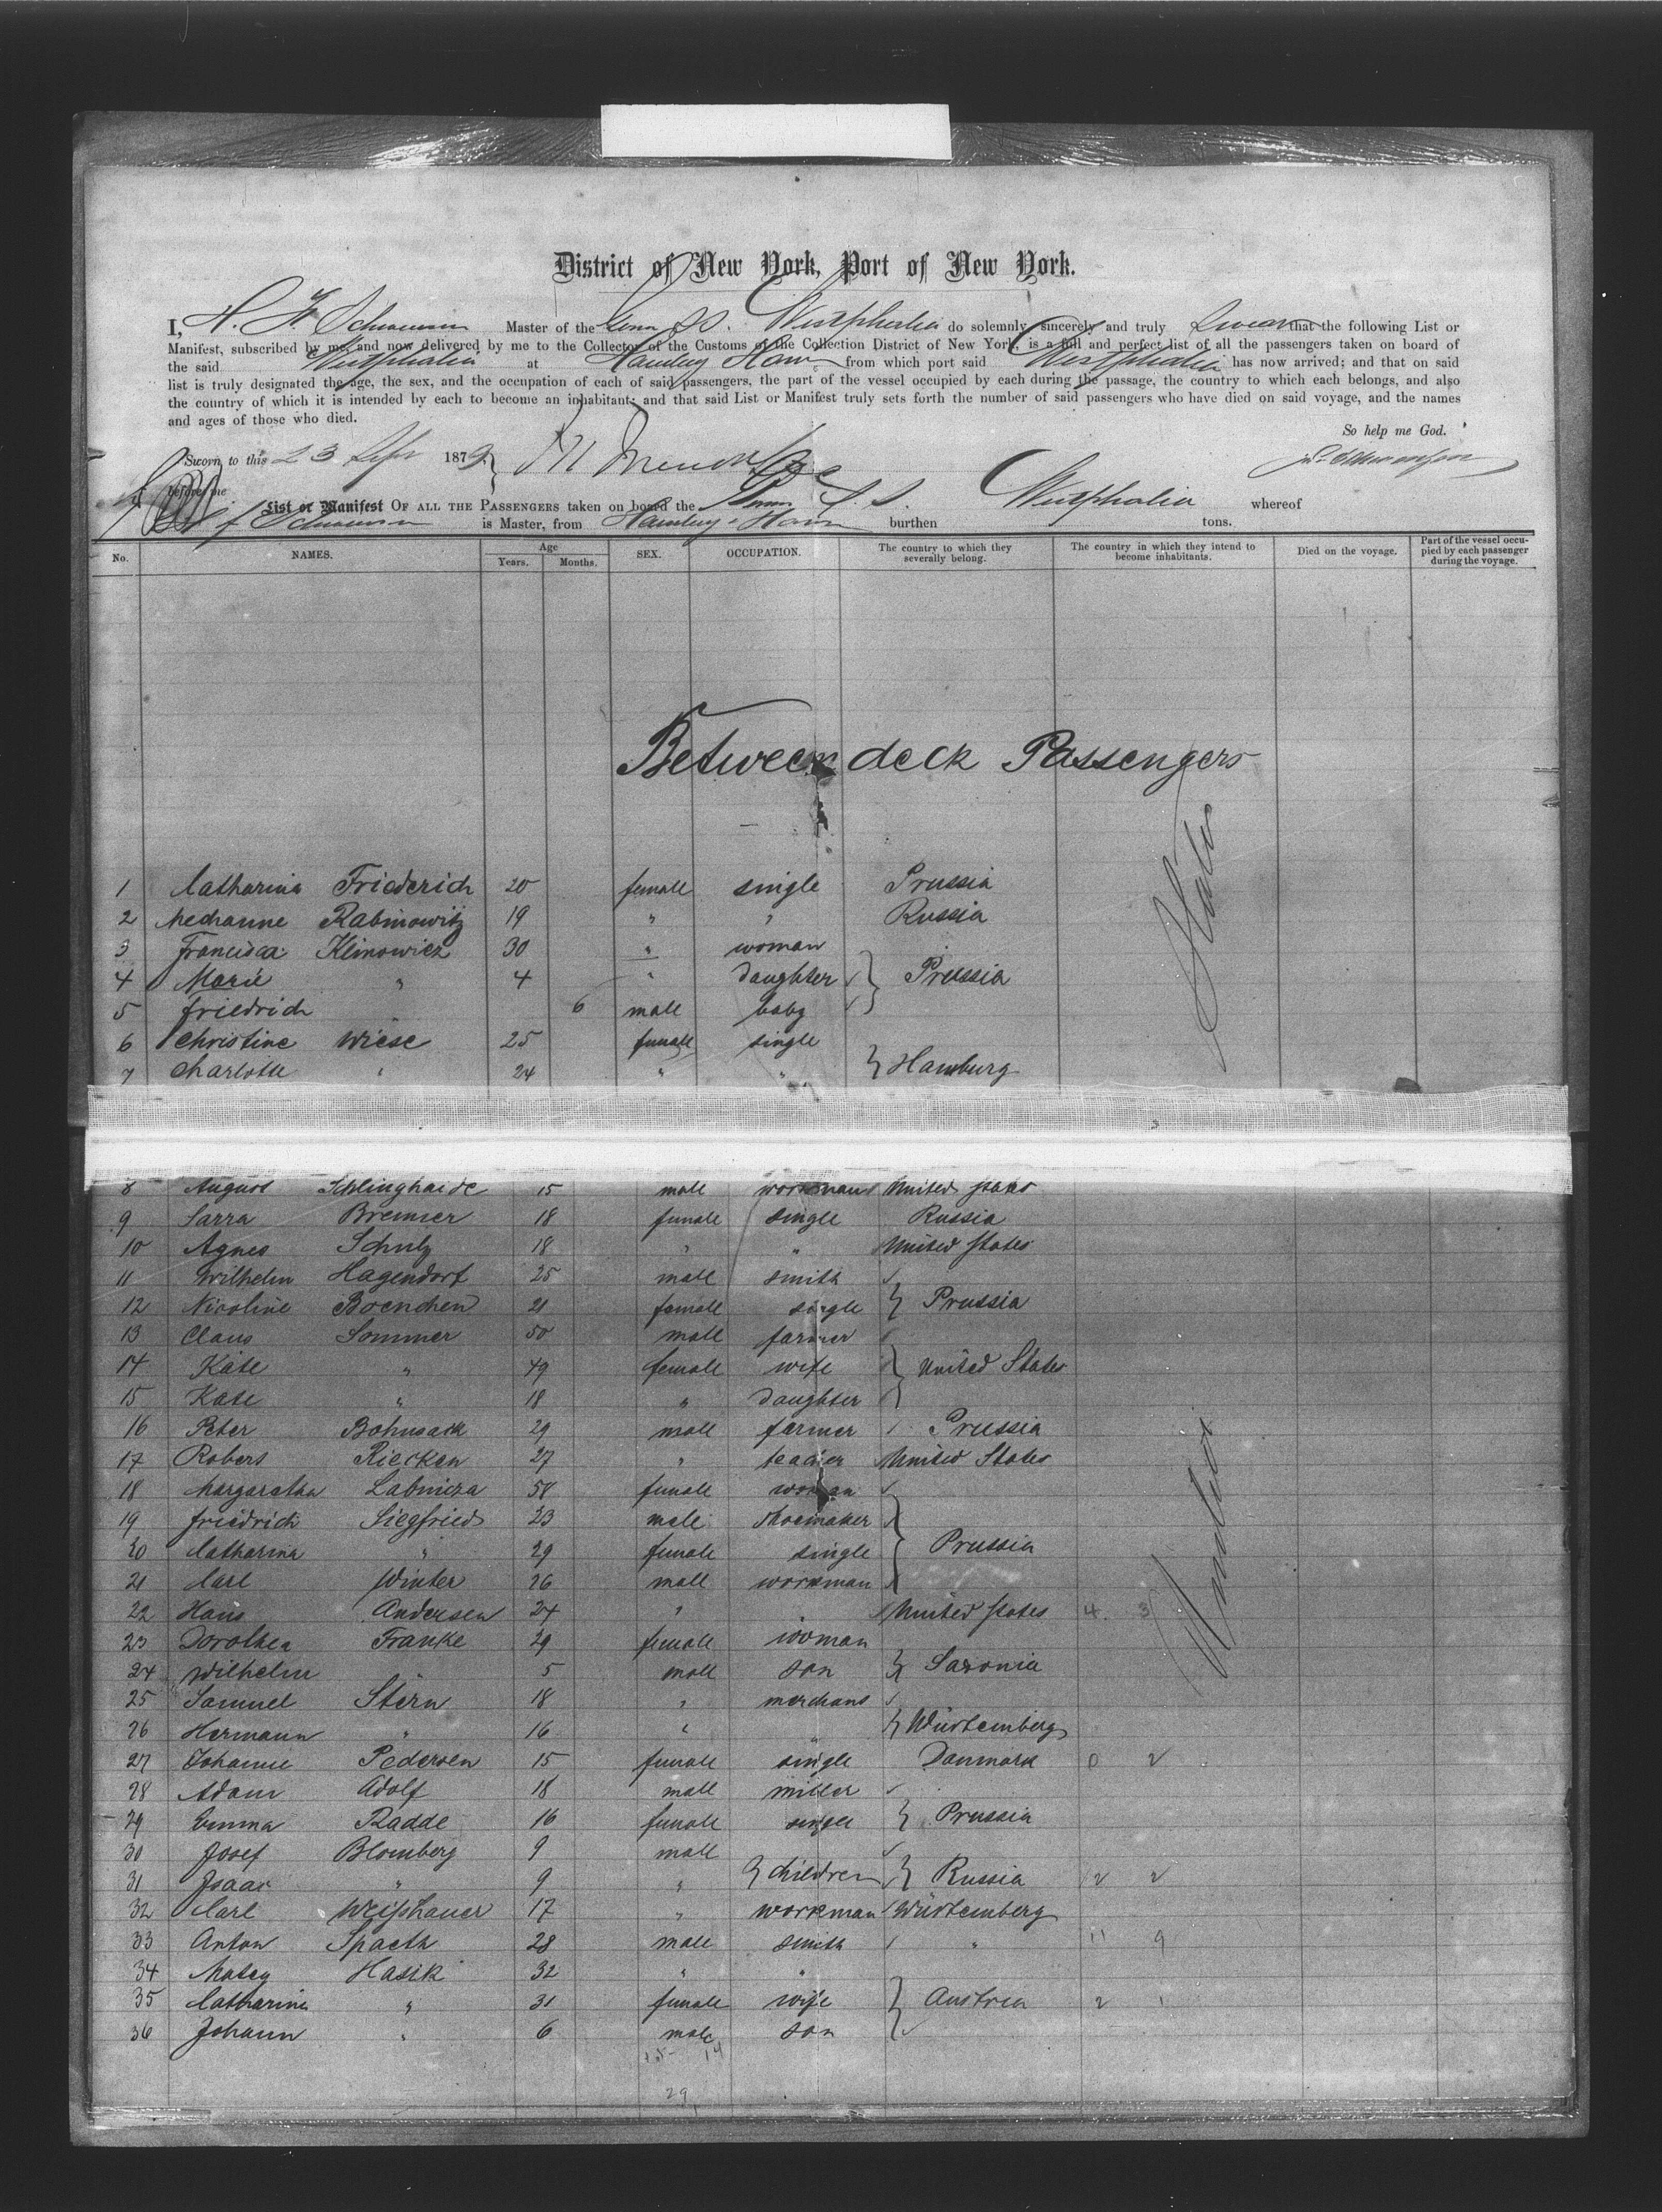 District of New York, Port of New York.
I, H. F. Schwensen Master of the Germ SS. Westphalia do solemnly, sincerely and truly swear that the following List or
Manifest, subscribed by me, and now delivered by me to the Collector of the Customs of the Collection District of New York, is a full and perfect list of all the passengers taken on board of
the said Westphalia at Hamburg Havre from which port said Westphalia has now arrived; and that on said
list is truly designated the age, the sex, and the occupation of each of said passengers, the part of the vessel occupied by each during the passage, the country to which each belongs, and also
the country of which it is intended by each to become an inhabitant; and that said List or Manifest truly sets forth the number of said passengers who have died on said voyage, and the names
and ages of those who died.
So help me God.
Sworn to this 23 Sepr 1879
before me
List or Manifest OF ALL THE PASSENGERS taken on board the S. S. Westphalia whereof
is Master, from Hamburg & Havre burthen tons.
No. NAMES. Age Years. Months. SEX. OCCUPATION. The country to which they severally belong. The country in which they intend to become inhabitants. Died on the voyage. Part of the vessel occupied by each passenger during the voyage.
Between deck Passengers
States
1 Catharina Friederich 20 female single Prussia
2 Mechanne Rabinowitz 19 " " Russia
3 Francisca Klinowicz 30 " woman
4 Marie " 4 " daughter } Prussia
5 Friedrich " 6 male baby
6 Christine Wiese 25 female single
7 Charlotte " 24 " " } Hamburg
8 August Schlinghaide 15 male workman United States
9 Sarra Bremer 18 female single Russia
10 Agnes Schulz 18 " " United States
11 Wilhelm Hagendorf 25 male smith
12 Nicoline Boenchen 21 female single } Prussia
13 Claus Sommer 50 male farmer
14 Käte " 49 female wife } United States
15 Kate " 18 " daughter
16 Peter Bohnsack 29 male farmer Prussia
17 Robert Riecken 27 " teacher United States
18 Margaretha Labmiza 58 female woman
19 Friedrich Siegfried 23 male shoemaker
20 Catharina " 29 female single } Prussia
21 Carl Winter 26 male workman
22 Hans Andersen 24 " " United States 4 3
23 Dorothea Franke 29 female woman
24 Wilhelm " 5 male son } Saxonia
25 Samuel Stern 18 " merchant
26 Hermann " 16 " " } Würtemberg
27 Johanne Pedersen 15 female single Danmark 0 2
28 Adam Adolf 18 male miller
29 Emma Radde 16 female single } Prussia
30 Josef Blomberg 9 male
31 Isaac " 9 " } children } Russia 2 2
32 Carl Weißhauer 17 " workman Würtemberg
33 Anton Spaeth 28 male smith " 11 9
34 Matey Hasik 32 " "
35 Catharine " 31 female wife } Austria 2 1
36 Johann " 6 male son
15 14
29
United